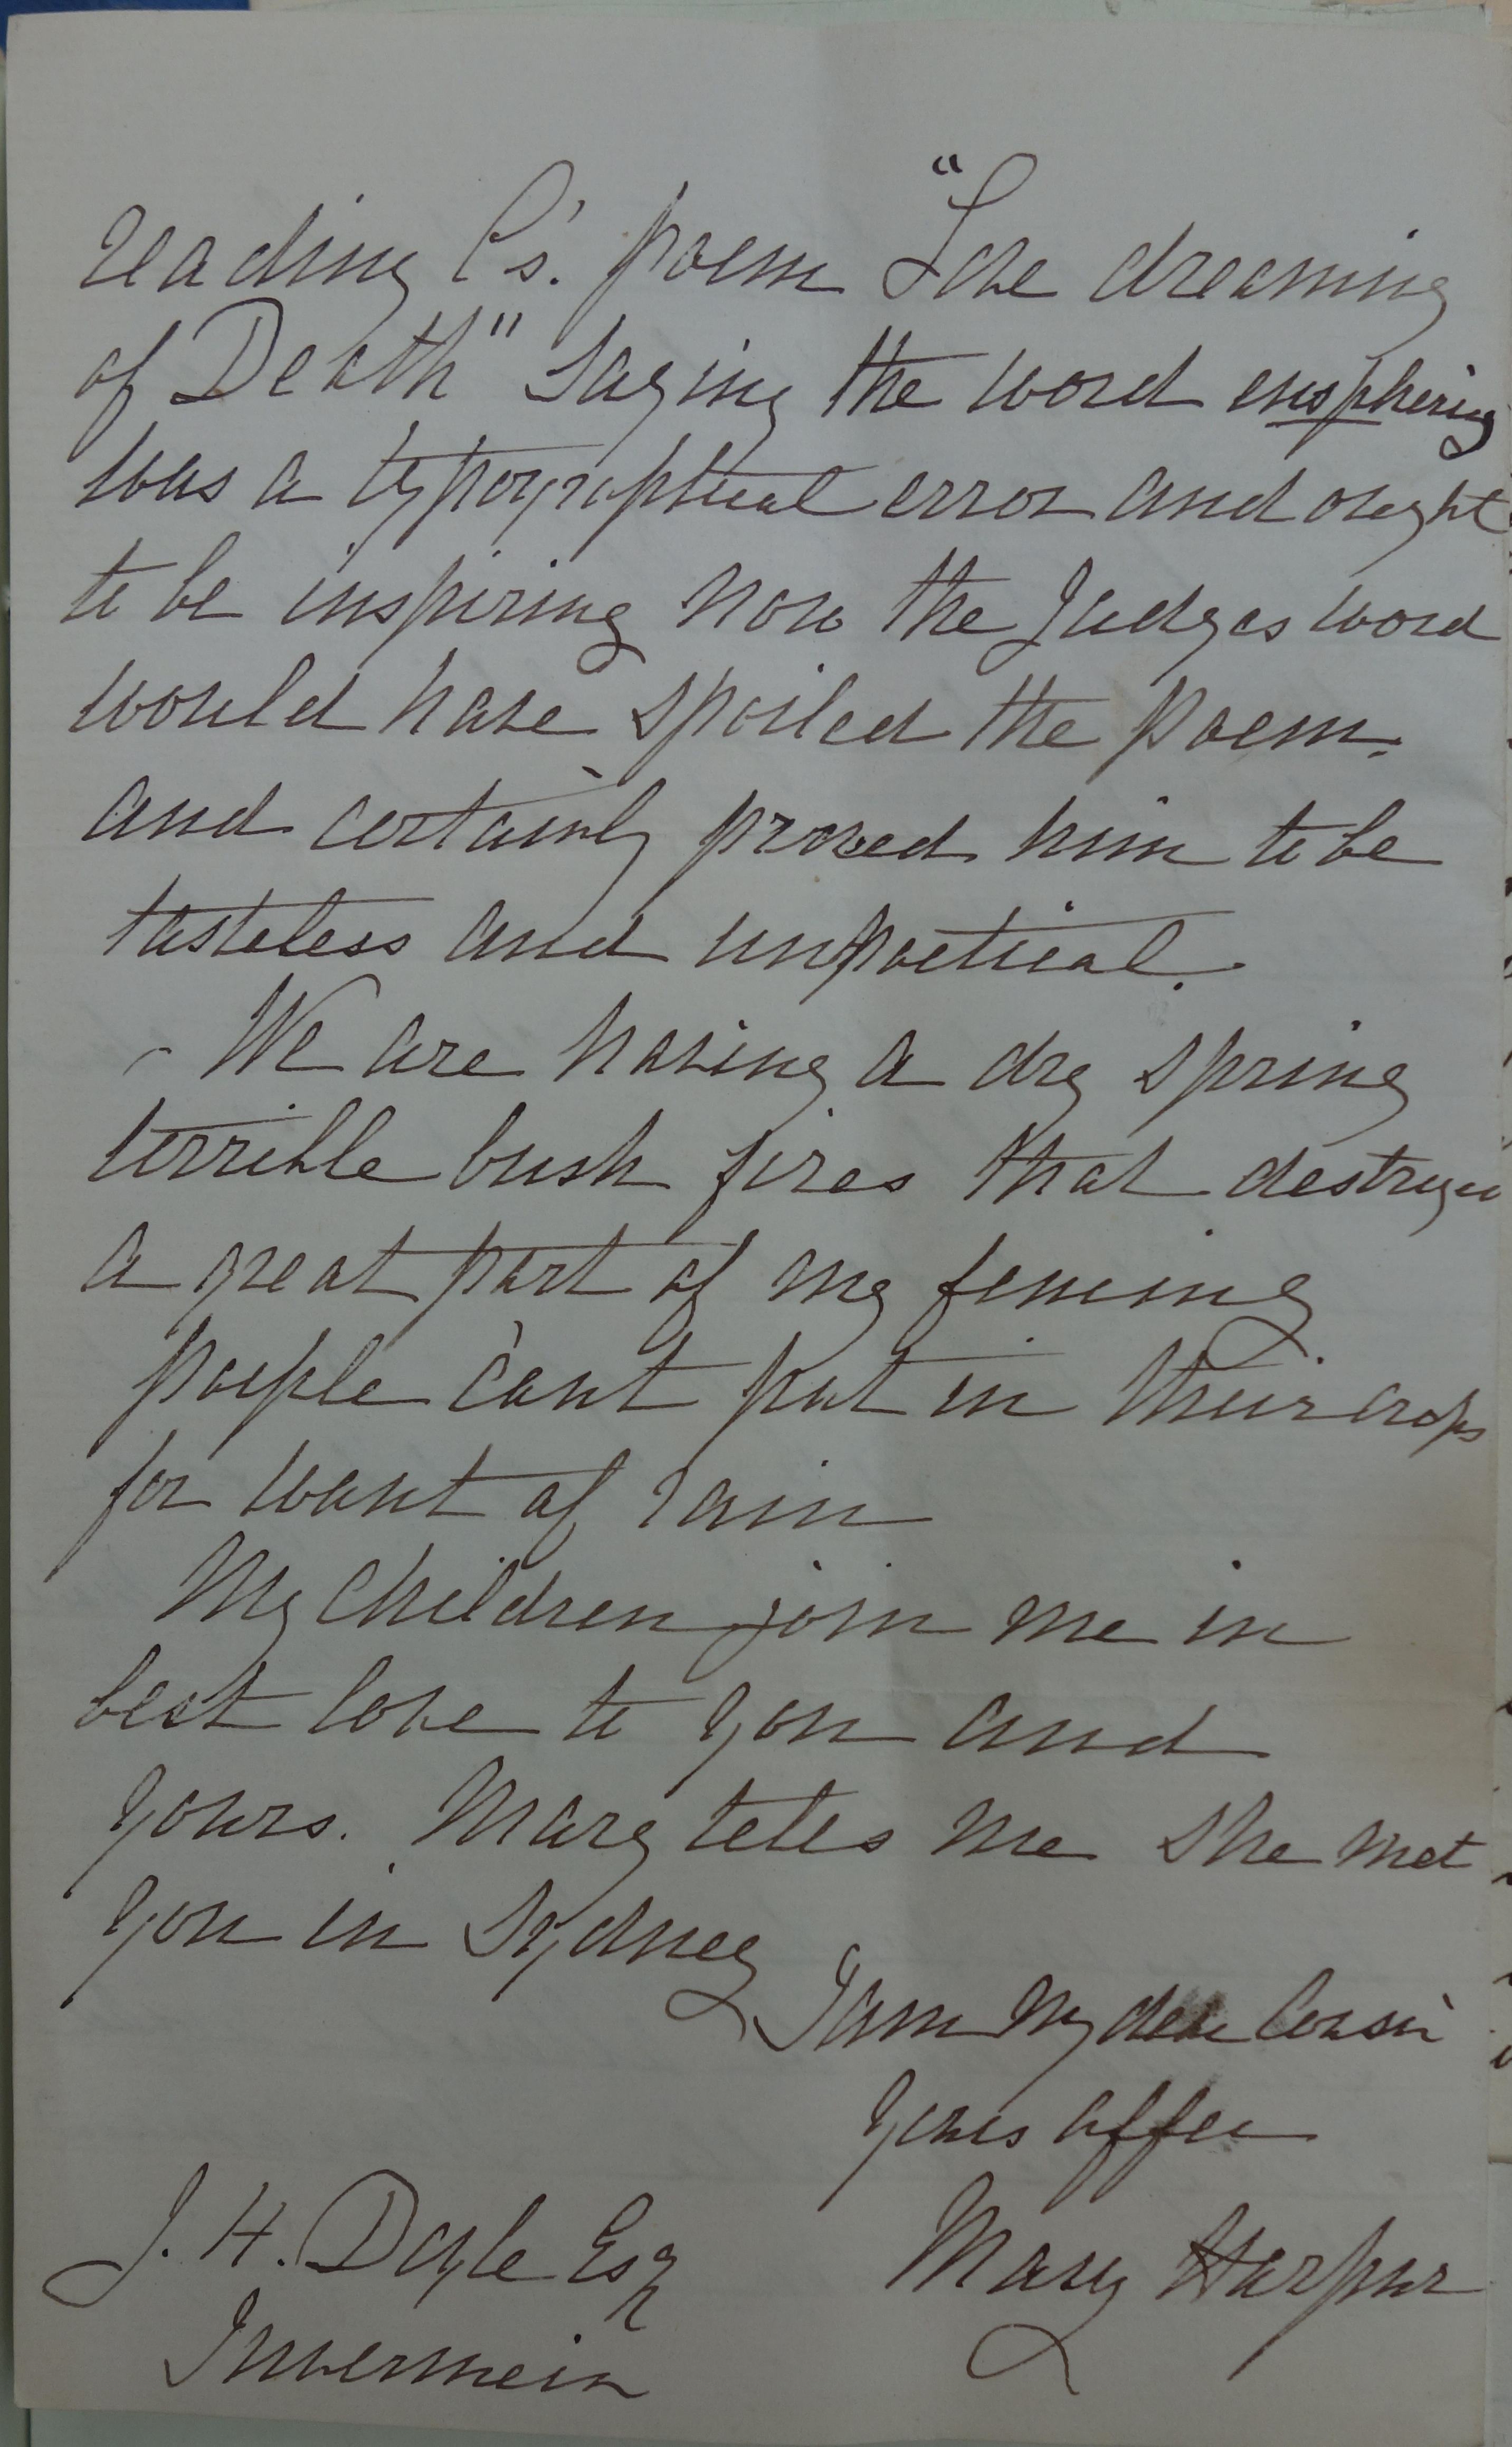 reading C's. poem "Love dreaming
of Death" saying the word ensphering
was a typographical error and ought
to be inspiring now the Judges word
would have spoiled the poem.
and certainly proved him to be
tasteless and unpoetical.
We are having a dry spring
terrible bush fires that destroyed
a great part of my fencing
people can't put in their crops
for want of rain
My children join me in
best love to you and
yours. Mary tells me she met
you in Sydney
I am My dear Cousin
Yours affec
Mary Harpur
J. H. Doyle Esq
Invermein